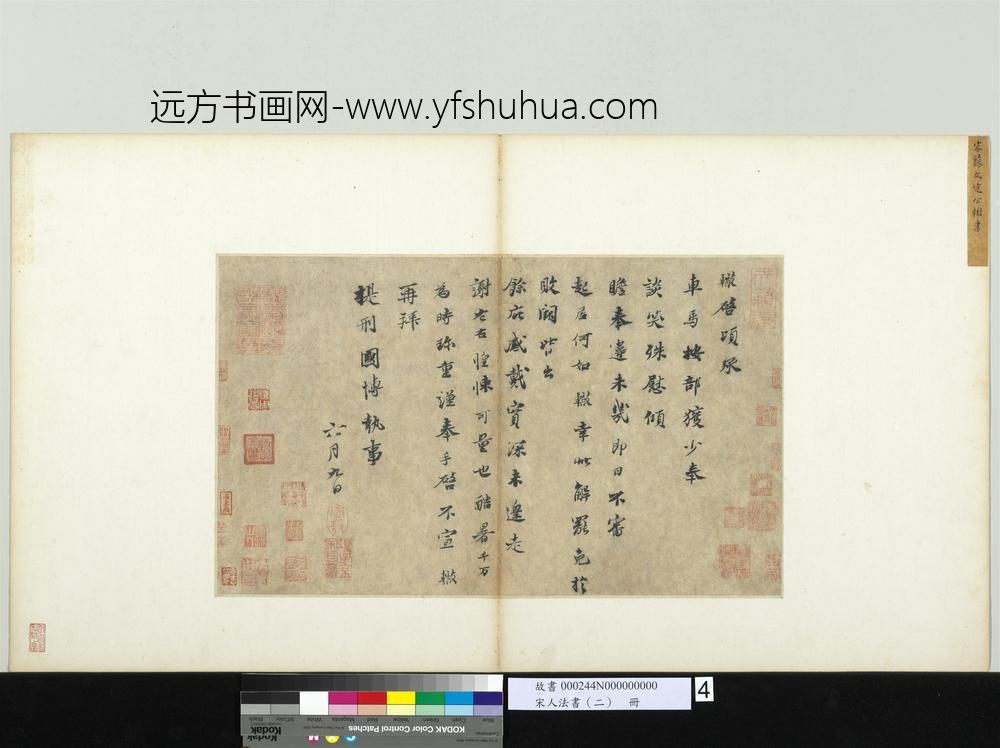 远方书画网-www.yfshuhua.com
宋蘇文定公轍書
轍啓頃承
車馬按部獲少奉
談笑殊慰傾
瞻奉違未幾即日不審
起居何如轍幸此解罷免於
敗闕皆出
餘庇感戴實深未遑走
謝左右惶悚可量也酷暑千万
為時珍重謹奉手啓不宣轍
再拜
提刑國博執事
六月九日
故書 000244N000000000
宋人法書（二） 冊
4
Blue
Cyan
Green
Yellow
Red
Magenta
White
3/Color
Black
KODAK Color Control Patches
Kodak